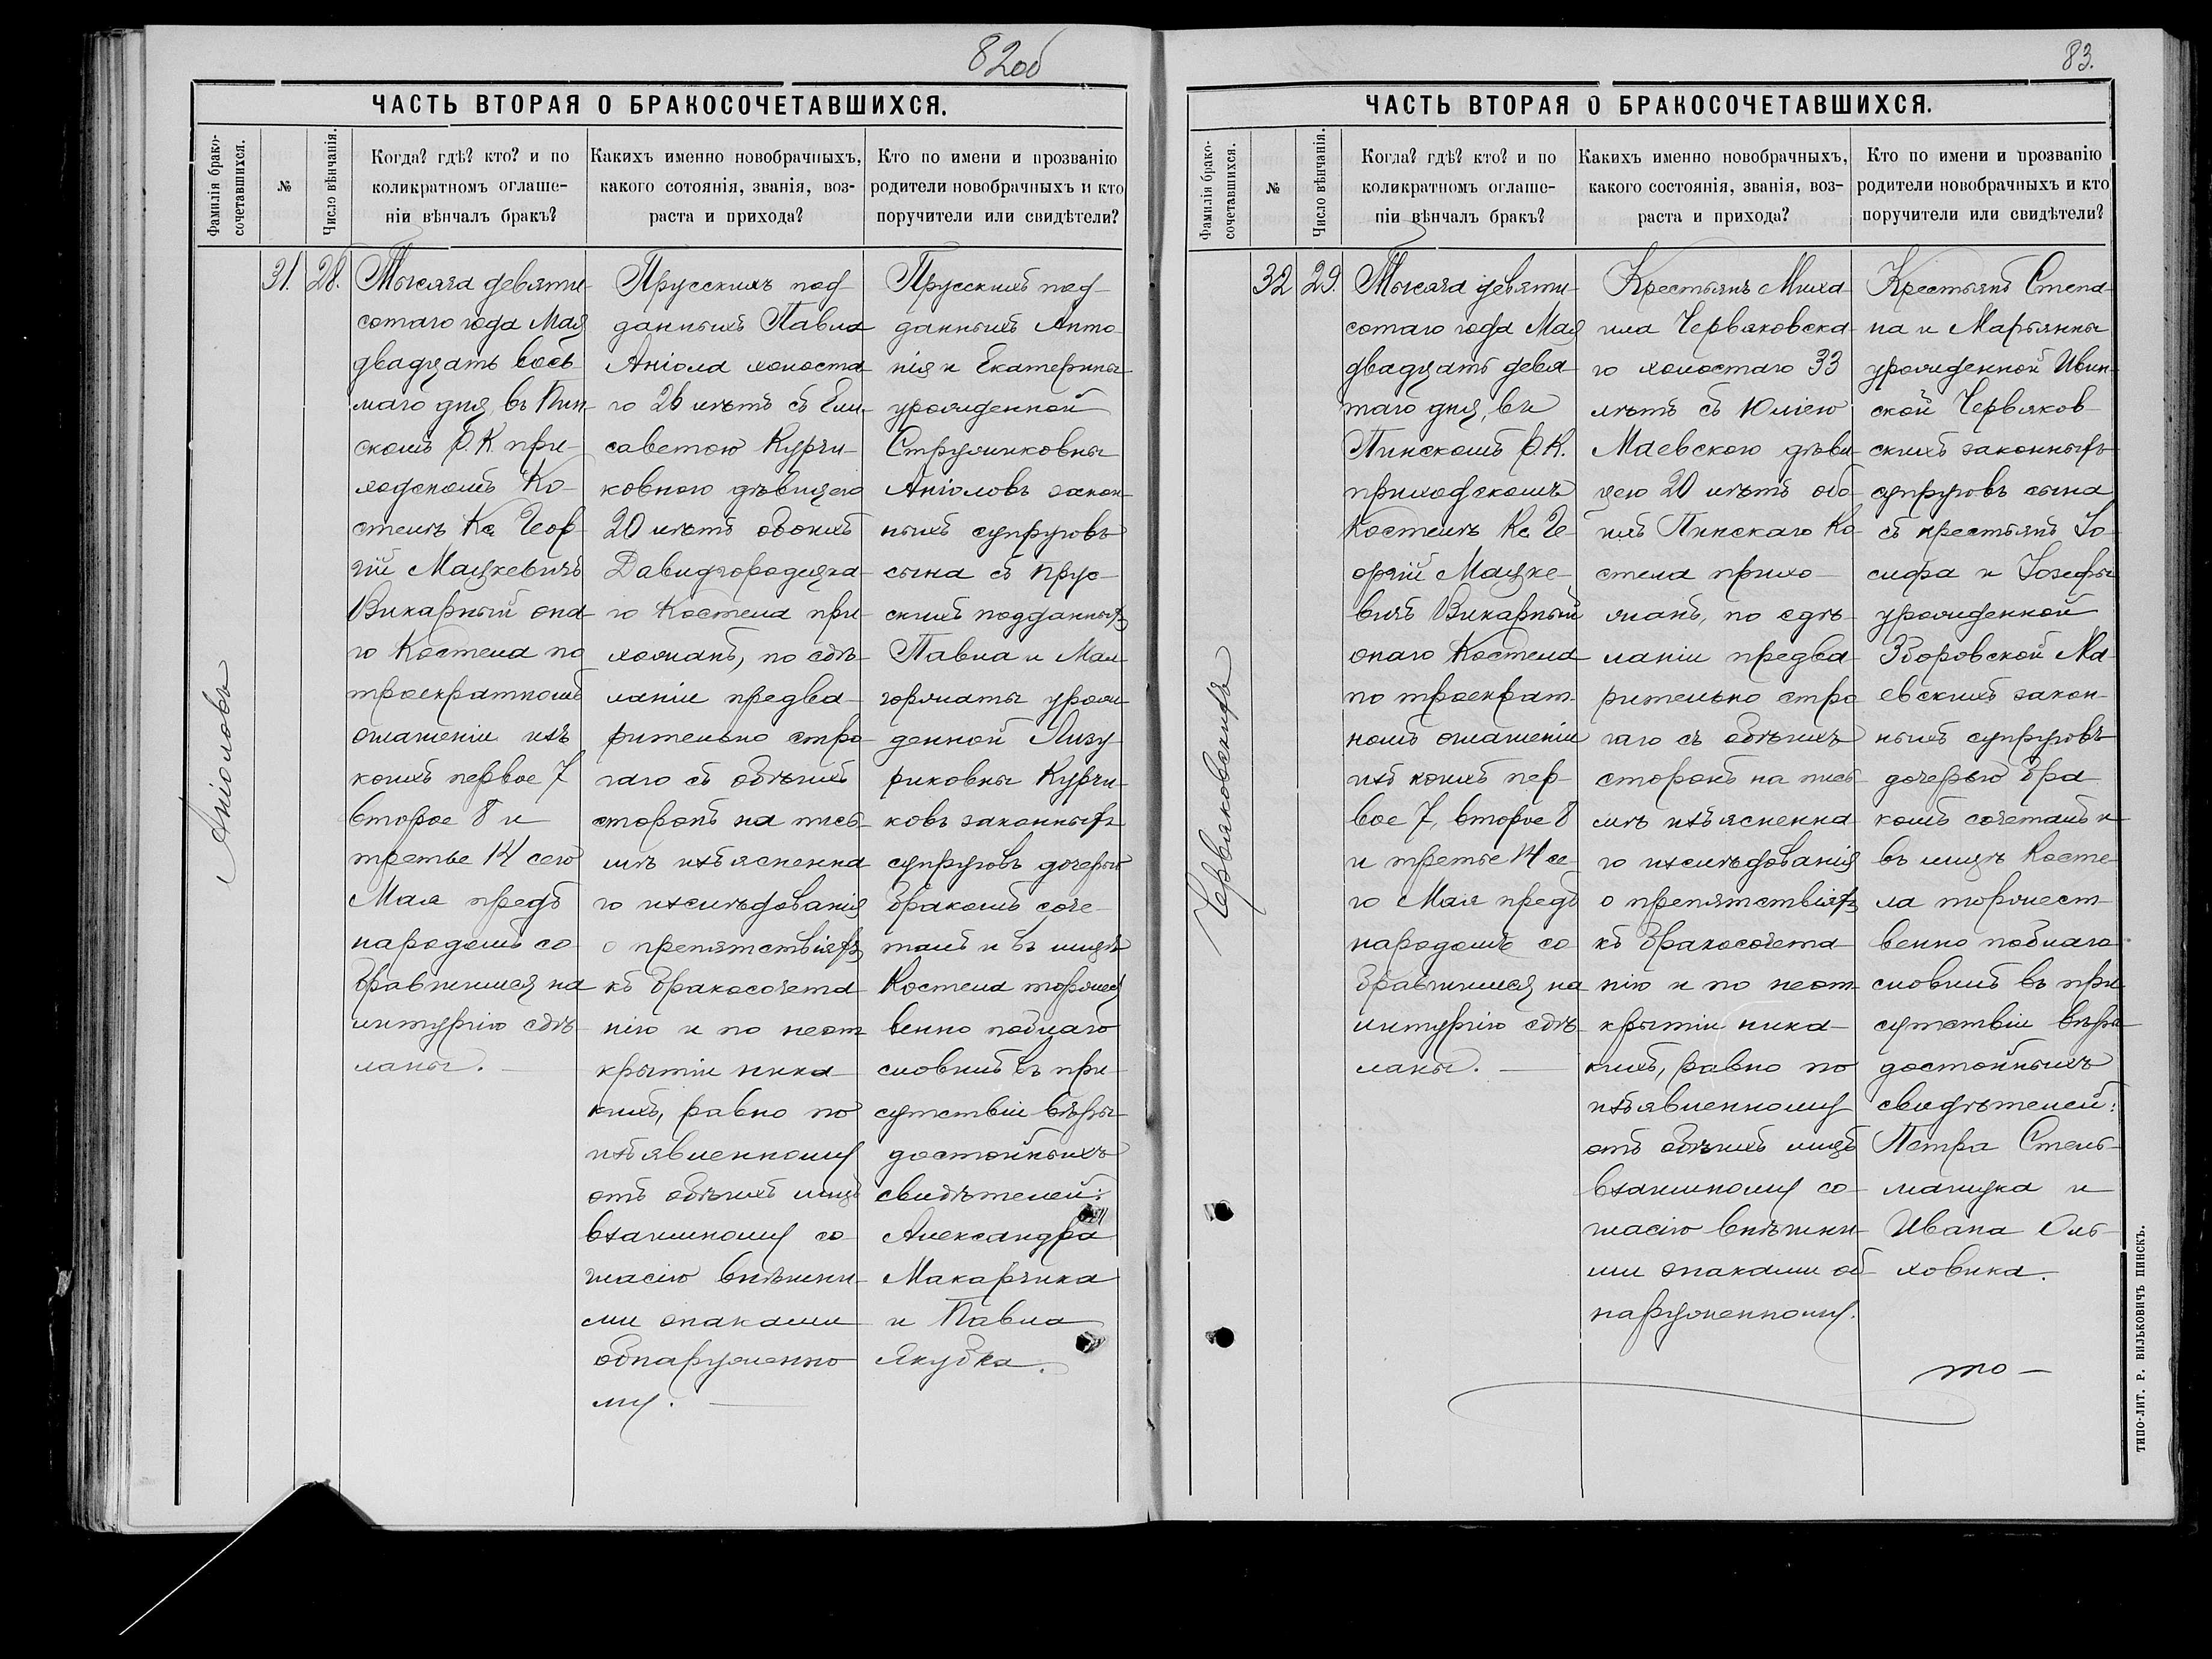 82об
ЧАСТЬ ВТОРАЯ О БРАКОСОЧЕТАВШИХСЯ.
Фамилія брако-
сочетавшихся.
№
Число вѣнчанія.
Когда? гдѣ? кто? и по
коликратномъ оглаше-
ніи вѣнчалъ бракъ?
Какихъ именно новобрачныхъ,
какого сотоянія, званія, воз-
раста и прихода?
Кто по имени и прозванію
родители новобрачныхъ и кто
поручители или свидѣтели?
Аніоловъ
31.
28.
Тысяча девяти-
сотаго года Мая
двадцать вось-
маго дня, въ Пин-
скомъ Р. К. при-
ходскомъ Ко-
стелѣ Кс. Геор-
гій Мацкевичъ
Викарный она-
го Костела по
троекратномъ
оглашеніи изъ
коихъ первое 7
второе 8 и
третье 14 сего
Мая предъ
народомъ со-
бравшимся на
литургію сдѣ-
ланы.
Прусскихъ под-
данныхъ Павла
Аніола холоста-
го 26 лѣтъ съ Ели-
саветою Курчи-
ковною дѣвицею
20 лѣтъ обоихъ
Давидгородецка-
го Костела при-
хожанъ, по сдѣ-
ланіи предва-
рительно стро-
гаго съ обѣихъ
сторонъ на пись-
мѣ изъясненна-
го изслѣдованія
о препятствіяхъ
къ бракосочета-
нію и по неот-
крытіи ника-
кихъ, равно по
изъявленному
отъ обѣихъ лицъ
взаимному со-
гласію внѣшни-
ми знаками
обнаруженно-
му.
Прусскихъ под-
данныхъ Анто-
нія и Екатерины
урожденной
Стружиковны
Аніоловъ закон-
ныхъ супруговъ
сына съ прус-
скихъ подданныхъ
Павла и Мал-
горжаты урож-
денной Лизу-
риковны Курчи-
ковъ законныхъ
супруговъ дочерью
бракомъ соче-
талъ и въ лицѣ
Костела торжест-
венно поблаго-
словилъ въ при-
сутствіи вѣры-
достойныхъ
свидѣтелей:
Александра
Макарчика
и Павла
Якубка.
83.
ЧАСТЬ ВТОРАЯ О БРАКОСОЧЕТАВШИХСЯ.
Фамилія брако-
сочетавшихся.
№
Число вѣнчанія.
Когла? гдѣ? кто? и по
коликратномъ оглаше-
ніи вѣнчалъ бракъ?
Какихъ именно новобрачныхъ,
какого состоянія, званія, воз-
раста и прихода?
Кто по имени и прозванію
родители новобрачныхъ и кто
поручители или свидѣтели?
Червяковскихъ
32
29.
Тысяча девяти-
сотаго года Мая
двадцать девя-
таго дня, въ
Пинскомъ Р. К.
приходскомъ
Костелѣ Кс. Ге-
оргій Мацке-
вичъ Викарный
онаго Костела
по троекрат-
номъ оглашеніи
изъ коихъ пер-
вое 7, второе 8
и третье 14 се-
го Мая предъ
народомъ со-
бравшимся на
литургію сдѣ-
ланы.
Крестьянъ Миха-
ила Червяковска-
го холостаго 33
лѣтъ съ Юліею
Маевскою дѣви-
цею 20 лѣтъ обо-
ихъ Пинскаго Ко-
стела прихо-
жанъ, по сдѣ-
ланіи предва-
рительно стро-
гаго съ обѣихъ
сторонъ на пись-
мѣ изъясненна-
го изслѣдованія
о препятствіяхъ
къ бракосочета-
нію и по неот-
крытіи ника-
кихъ, равно по
изъявленному
отъ обѣихъ лицъ
взаимному со-
гласію внѣшни-
ми знаками об-
наруженному.
Крестьянъ Степа-
на и Марьянны
урожденной Ивин-
ской Червяков-
скихъ законныхъ
супруговъ сына
съ крестьянъ Іо-
сифа и Іозефы
урожденной
Зборовской Ма-
евскихъ закон-
ныхъ супруговъ
дочерью бра-
комъ сочеталъ и
въ лицѣ Косте-
ла торжест-
венно поблаго-
словилъ въ при-
сутствіи вѣры-
достойныхъ
свидѣтелей:
Петра Стель-
мащука и
Ивана Оль-
ховика.
то —
ТИПО-ЛИТ. Р. ВИЛЬКОВИЧЪ ПИНСКЪ.